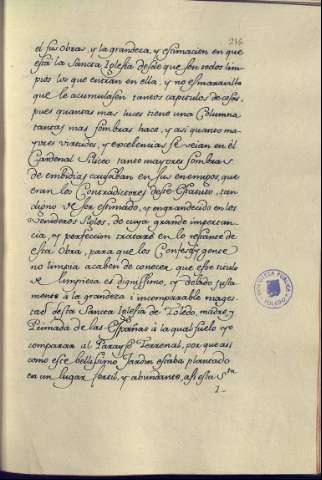 216
el sus obras, y la grandeza, y estimacion en que
está la Sancta Iglesia desde que son todos lim-
pios los que entran en ella, y no es maravilla
que le acumulasen tantos capitulos de cosas,
pues quantas mas luces tiene una Columna
tantas mas sombras hace, y asi quanto ma-
yores virtudes, y excelencias se veian en el
Cardenal Siliceo tanto mayores sombras
de embidias causaban en sus enemigos, que
eran los Contradictores deste Estatuto, tan
digno de ser estimado, y engrandecido en los
venideros siglos, de cuya grande importan-
cia, y perfeccion trataré en lo restante de
esta obra, para que los Confesos y gente
no limpia acaben de conocer, que este titulo
de limpieza es dignissimo, y debido justa-
mente à la grandeza i incomparable mages-
tad desta Sancta Iglesia de Toledo, madre, y
Primada de las Españas à la qual suelo yo
comparar al Parayso Terrenal, porque asi
como este bellissimo Jardin estaba plantado
en un lugar fertil, y abundante, asi esta Sta
I-
BIBLIOTECA PUBLICA
TOLEDO